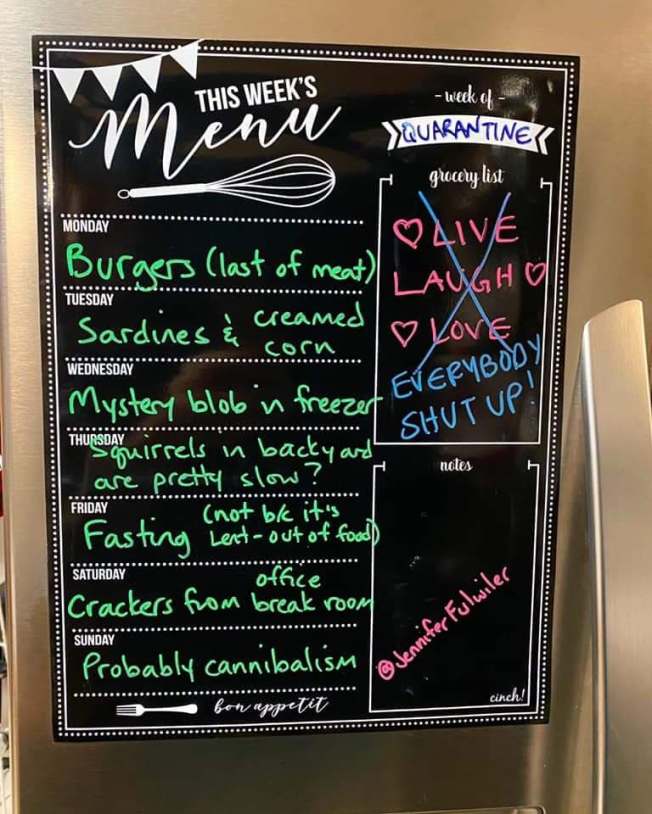 THIS WEEK'S
Menu
- week of -
QUARANTINE
MONDAY
Burgers (last of meat)
TUESDAY
Sardines & creamed
corn
WEDNESDAY
Mystery blob in freezer
THURSDAY
Squirrels in backyard
are pretty slow?
FRIDAY
Fasting (not b/c it's
Lent - out of food)
SATURDAY
Crackers from office
break room
SUNDAY
Probably cannibalism
bon appetit
grocery list
♡ LIVE
LAUGH ♡
♡ LOVE
EVERYBODY
SHUT UP!
notes
@JenniferFulwiler
cinch!